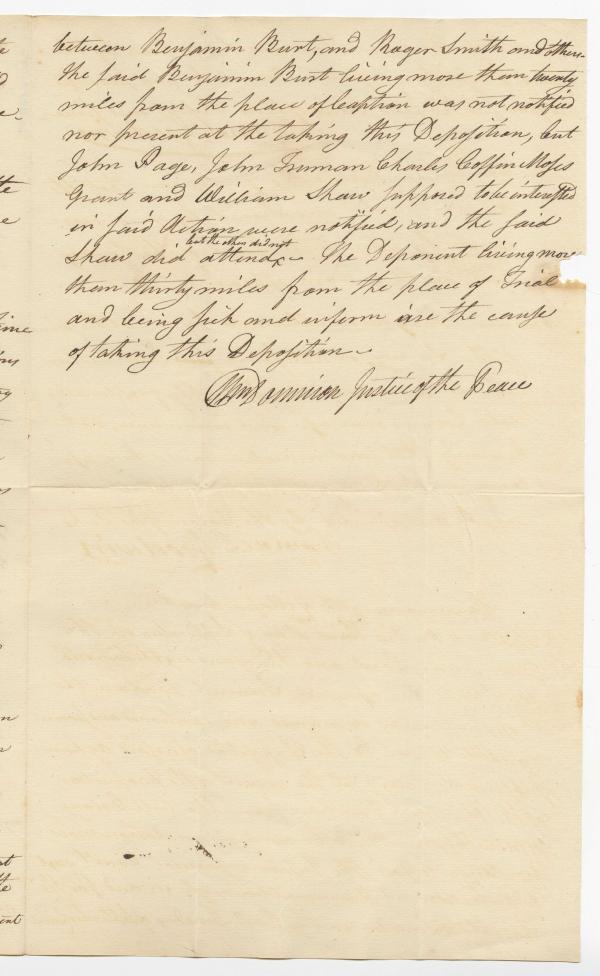 between Benjamin Burt, and Roger Smith and others
the said Benjamin Burt living more than twenty
miles from the place of Caption was not notified
nor present at the taking this Deposition, but
John Page, John Truman Charles Coffin Moses
Grant and William Shaw supposed to be interested
in said Action were notified, and the said
but the others did not
Shaw did attend ‸ The Deponent living more
than thirty miles from the place of Trial
and being sick and infirm are the cause
of taking this Deposition
Justice of the Peace